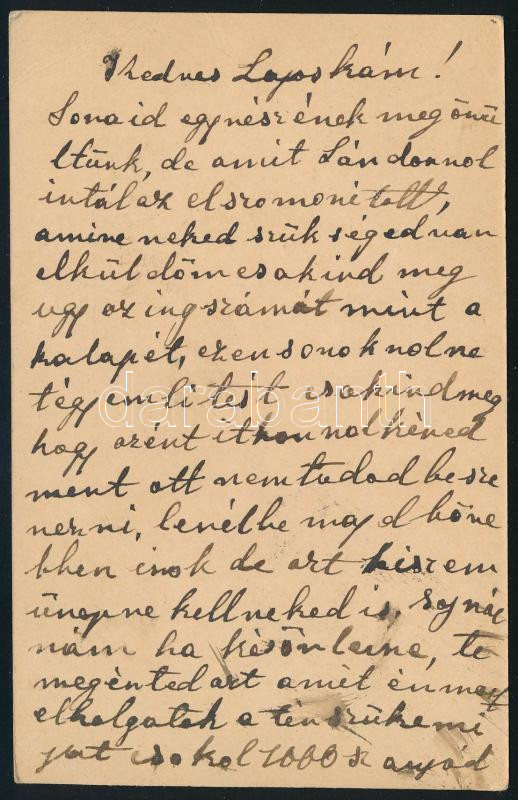 Kedves Lajoskám!
Soraid egyrészének megörü
ltünk, de amit Sándorrol
irtál az elszomoritott,
amire neked szükséged van
elküldöm csak ird meg
ugy az ingszámát mint a
kalapét, ezen sorokrol ne
tégy emlitést csak ird meg
hogy azért itthonrol kéred
mert ott nem tudod besze
rezni, levélbe majd bőve
bben irok de azt hiszem
ünepre kell neked is, sajnál
nám ha késön lenne, te
megérted azt amit én most
elhalgatok a
csokol 1000 sz anyád
darabanth